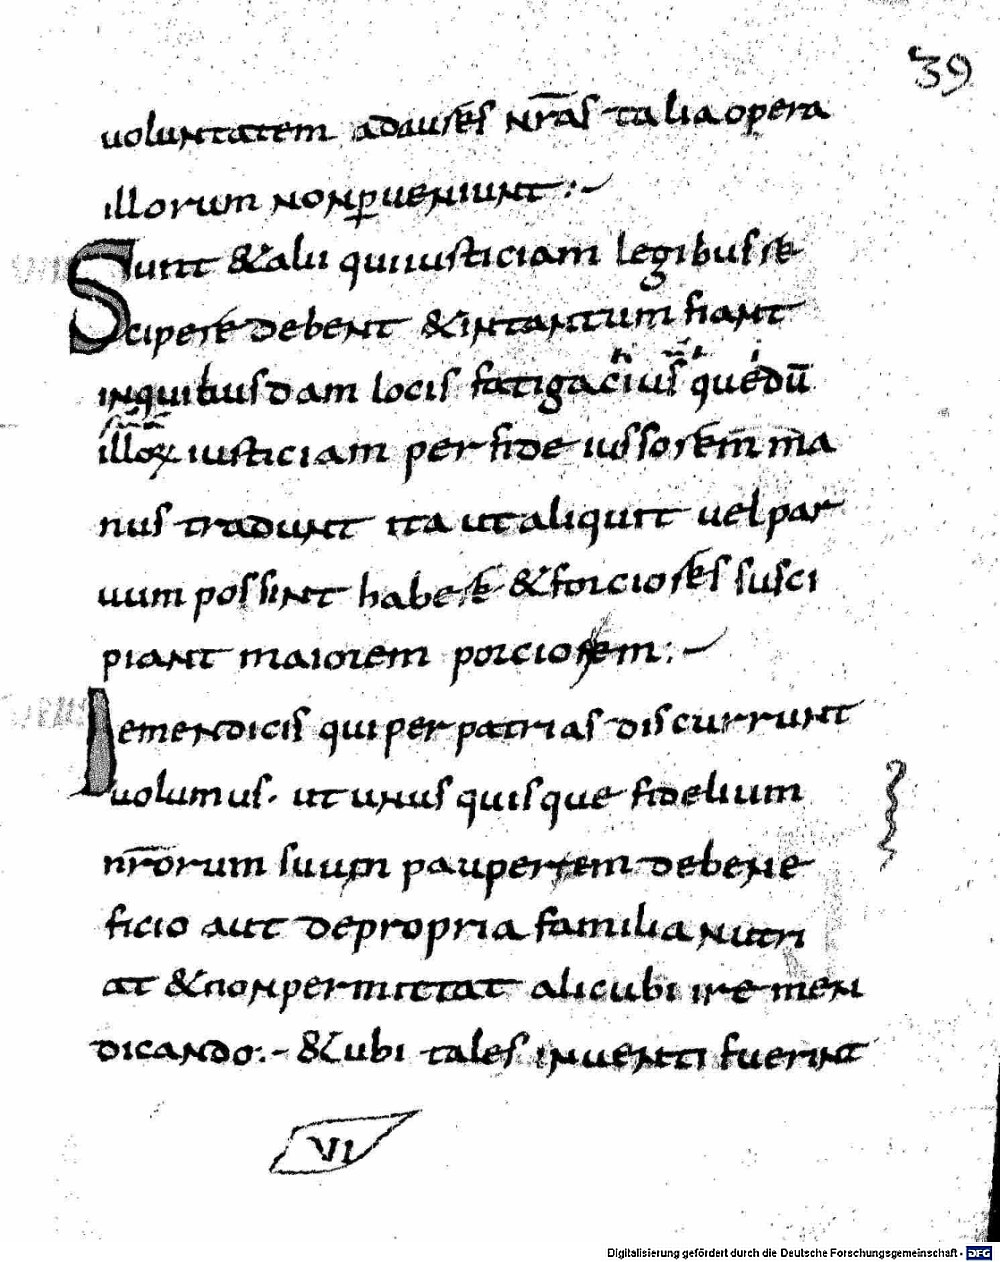 39
uoluntatem adaures nr̄as talia opera
illorum non ꝑueniunt:~
Sunt &alii qui iusticiam legibus re
cipere debent &intantum fiant
inquibusdam locis fatigaci us quedū
illoꝝ iusticiam per fide iussorem ma
nus tradunt ita utaliquit uel par
uum possint habere &forciores susci
piant maiorem porcionem:~
De mendicis qui per patrias discurrunt
uolumus. ut unus quisque fidelium
nr̄orum suum pauperem debene
ficio aut depropria familia nutri
at &non permittat alicubi ire men
dicando:- &ubi tales inuenti fuerint
VI
Digitalisierung gefördert durch die Deutsche Forschungsgemeinschaft - DFG